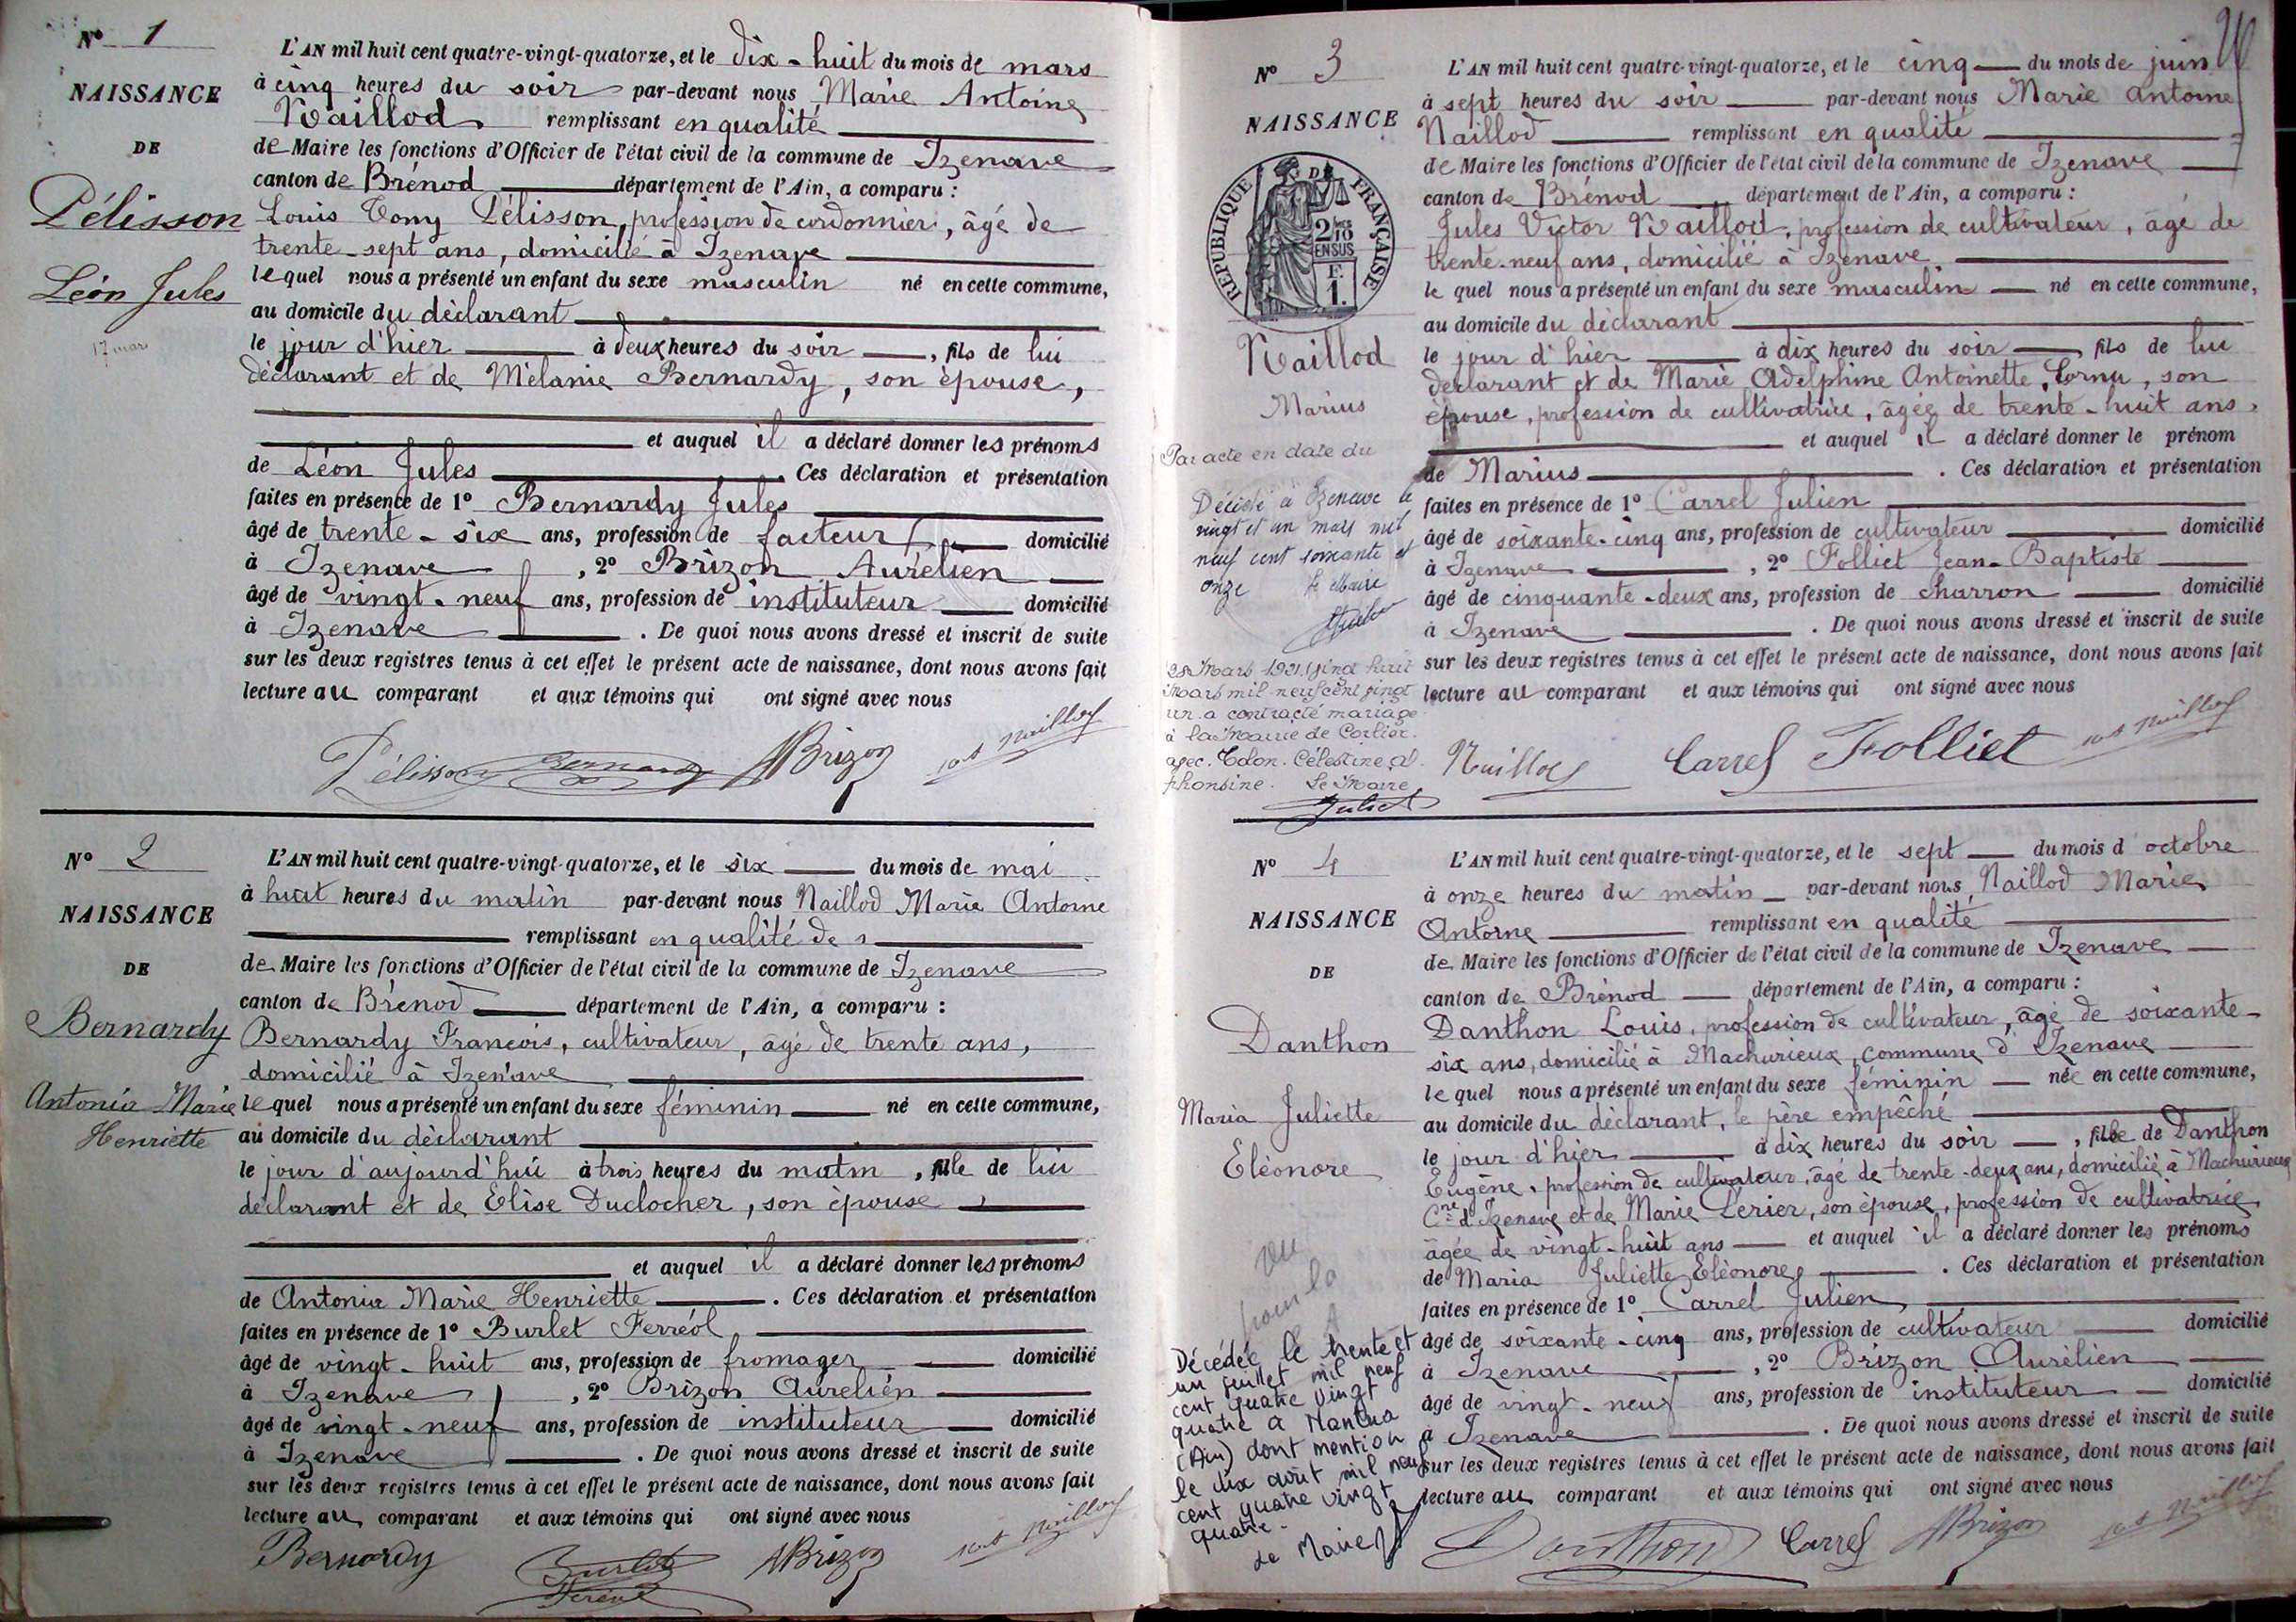 N° 1
NAISSANCE
DE
Pélisson
Léon Jules
17 mars
L'AN mil huit cent quatre-vingt-quatorze, et le dix-huit du mois de mars
à cinq heures du soir par-devant nous Marie Antoine
Naillod remplissant en qualité
de Maire les fonctions d'Officier de l'état civil de la commune de Izenave
canton de Brénod département de l'Ain, a comparu :
Louis Tony Pélisson, profession de cordonnier, âgé de
trente-sept ans, domicilié à Izenave
lequel nous a présenté un enfant du sexe masculin né en cette commune,
au domicile du déclarant
le jour d'hier à deux heures du soir, fils de lui
déclarant et de Mélanie Bernardy, son épouse,
et auquel il a déclaré donner les prénoms
de Léon Jules. Ces déclaration et présentation
faites en présence de 1° Bernardy Jules
âgé de trente-six ans, profession de facteur domicilié
à Izenave, 2° Brizon Aurélien
âgé de vingt-neuf ans, profession de instituteur domicilié
à Izenave. De quoi nous avons dressé et inscrit de suite
sur les deux registres tenus à cet effet le présent acte de naissance, dont nous avons fait
lecture au comparant et aux témoins qui ont signé avec nous
Pélisson Bernardy ABrizon Naillod
N° 2
NAISSANCE
DE
Bernardy
Antonia Marie
Henriette
L'AN mil huit cent quatre-vingt-quatorze, et le six du mois de mai
à huit heures du matin par-devant nous Naillod Marie Antoine
remplissant en qualité de
de Maire les fonctions d'Officier de l'état civil de la commune de Izenave
canton de Brénod département de l'Ain, a comparu :
Bernardy François, cultivateur, âgé de trente ans,
domicilié à Izenave
lequel nous a présenté un enfant du sexe féminin né en cette commune,
au domicile du déclarant
le jour d'aujourd'hui à trois heures du matin, fille de lui
déclarant et de Elise Duclocher, son épouse,
et auquel il a déclaré donner les prénoms
de Antonia Marie Henriette. Ces déclaration et présentation
faites en présence de 1° Burlet Ferréol
âgé de vingt-huit ans, profession de fromager domicilié
à Izenave, 2° Brizon Aurélien
âgé de vingt-neuf ans, profession de instituteur domicilié
à Izenave. De quoi nous avons dressé et inscrit de suite
sur les deux registres tenus à cet effet le présent acte de naissance, dont nous avons fait
lecture au comparant et aux témoins qui ont signé avec nous
Bernardy Burlet ABrizon Naillod
Féréol
N° 3
NAISSANCE
RÉPUBLIQUE FRANÇAISE
2/10 EN SUS
F. 1.
Naillod
Marius
Par acte en date du
Décédé à Izenave le
vingt et un mars mil
neuf cent soixante et
onze Le Maire
28 Mars 1921 Vingt huit
Mars mil neuf cent vingt
un a contracté mariage
à la Mairie de Corlier
avec Tolon Célestine Al
phonsine. Le Maire
Juliet
L'AN mil huit cent quatre-vingt-quatorze, et le cinq du mois de juin
à sept heures du soir par-devant nous Marie Antoine
Naillod remplissant en qualité
de Maire les fonctions d'Officier de l'état civil de la commune de Izenave
canton de Brénod département de l'Ain, a comparu :
Jules Victor Naillod, profession de cultivateur, âgé de
trente-neuf ans, domicilié à Izenave
lequel nous a présenté un enfant du sexe masculin né en cette commune,
au domicile du déclarant
le jour d'hier à dix heures du soir, fils de lui
déclarant et de Marie Adelphine Antoinette Cornu, son
épouse, profession de cultivatrice, âgée de trente-huit ans,
et auquel il a déclaré donner le prénom
de Marius. Ces déclaration et présentation
faites en présence de 1° Carrel Julien
âgé de soixante-cinq ans, profession de cultivateur domicilié
à Izenave, 2° Folliet Jean-Baptiste
âgé de cinquante-deux ans, profession de charron domicilié
à Izenave. De quoi nous avons dressé et inscrit de suite
sur les deux registres tenus à cet effet le présent acte de naissance, dont nous avons fait
lecture au comparant et aux témoins qui ont signé avec nous
Naillod Carrel Folliet Naillod
N° 4
NAISSANCE
DE
Danthon
Maria Juliette
Eléonore
vu
pour la
Décédée le trente et
un juillet mil neuf
cent quatre vingt
quatre à Nantua
(Ain) dont mention
le dix août mil neuf
cent quatre vingt
quatre.
Le Maire
L'AN mil huit cent quatre-vingt-quatorze, et le sept du mois d'octobre
à onze heures du matin par-devant nous Naillod Marie
Antoine remplissant en qualité
de Maire les fonctions d'Officier de l'état civil de la commune de Izenave
canton de Brénod département de l'Ain, a comparu :
Danthon Louis, profession de cultivateur, âgé de soixante-
six ans, domicilié à Machurieux, commune d'Izenave
lequel nous a présenté un enfant du sexe féminin née en cette commune,
au domicile du déclarant, le père empêché
le jour d'hier à dix heures du soir, fille de Danthon
Eugène, profession de cultivateur, âgé de trente-deux ans, domicilié à Machurieux
Cne d'Izenave et de Marie Lérier, son épouse, profession de cultivatrice,
âgée de vingt-huit ans et auquel il a déclaré donner les prénoms
de Maria Juliette Eléonore. Ces déclaration et présentation
faites en présence de 1° Carrel Julien,
âgé de soixante-cinq ans, profession de cultivateur domicilié
à Izenave, 2° Brizon Aurélien
âgé de vingt-neuf ans, profession de instituteur domicilié
à Izenave. De quoi nous avons dressé et inscrit de suite
sur les deux registres tenus à cet effet le présent acte de naissance, dont nous avons fait
lecture au comparant et aux témoins qui ont signé avec nous
Danthon Carrel ABrizon Naillod